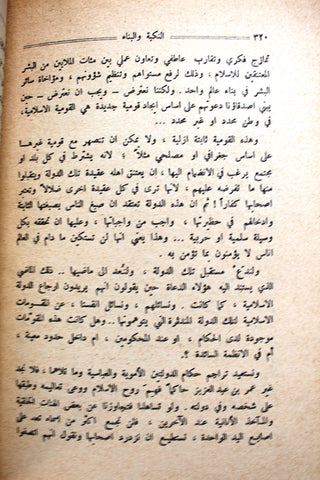 ٣٢٠ النكبة والبناء
تمازج فكري وتقارب عاطفي وتعاون عملي بين مئات الملايين من البشر
المعتنقين للاسلام ، وذلك لرفع مستواهم وتنظيم شؤونهم ، ومؤاخاة سائر
البشر في بناء عالم واحد . ولكننا نعترض – ويجب ان نعترض – حين
يبني اصدقاؤنا دعوتهم على اساس ايجاد قومية جديدة هي القومية الاسلامية،
في وطن محدد او غير محدد ...
وهذه القومية ثابتة ازلية ، ولا يمكن ان تنصهر مع قومية غيرها
على اساس جغرافي او مصلحي مثلاً ؛ لانه يشترط في كل بلد او
مجتمع يرغب في الانضمام اليها ، ان يعتنق اهله عقيدة تلك الدولة ويتقبلوا
منها ما تفرضه عليهم ، لانها ترى في كل عقيدة اخرى ضلالا وتعتبر
اصحابها كفاراً ! ثم ان هذه الدولة تعتقد ان صبغ الناس بصبغتها الثابتة
وادخالهم في حظيرتها ، واجب من واجباتها ، وعليها ان تحققه بكل
وسيلة سلمية او حربية ... وهذا يعني انها لن تستكين ما دام في العالم
اناس لا يؤمنون بما تؤمن به .
ولندع مستقبل تلك الدولة ، ولنعد الى ماضيها .. ذلك الماضي
الذي يستند اليه هؤلاء الدعاة حين يقولون انهم يريدون ارجاع الدولة
الاسلامية ، كما كانت . ونسائلهم ، ونسائل انفسنا ، عن المقومات
الاسلامية لتلك الدولة المندثرة التي يتوهمونها .. وهل كانت هذه المقومات
موجودة لدى الحكام ، او عند المحكومين ، ام داخل حدود معينة ،
أم في الانظمة السائدة ؟ .
ونستعيد تراجم حكام الدولتين الأموية والعباسية وما تلاهما ، فلا نجد
غير عمر بن عبد العزيز حاكماً فهم روح الاسلام ووعى تعاليمه وطبقها
على شخصه وفي دولته . ولو تساهلنا فتجاوزنا عن بعض الهنات الخلقية
والمآخذ الأنانية عند الآخرين ، فلن نجمع اكثر من اسماء تعد على
اصابع اليد الواحدة ، نستطيع ان نزدرد اصحابها ونقول انهم اتصفوا